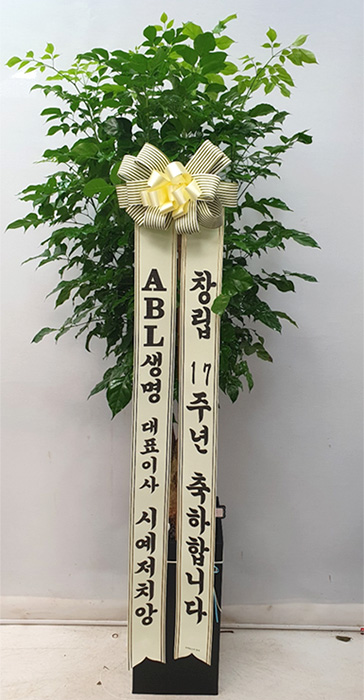 창립 17주년 축하합니다
ABL생명 대표이사 시예저치앙